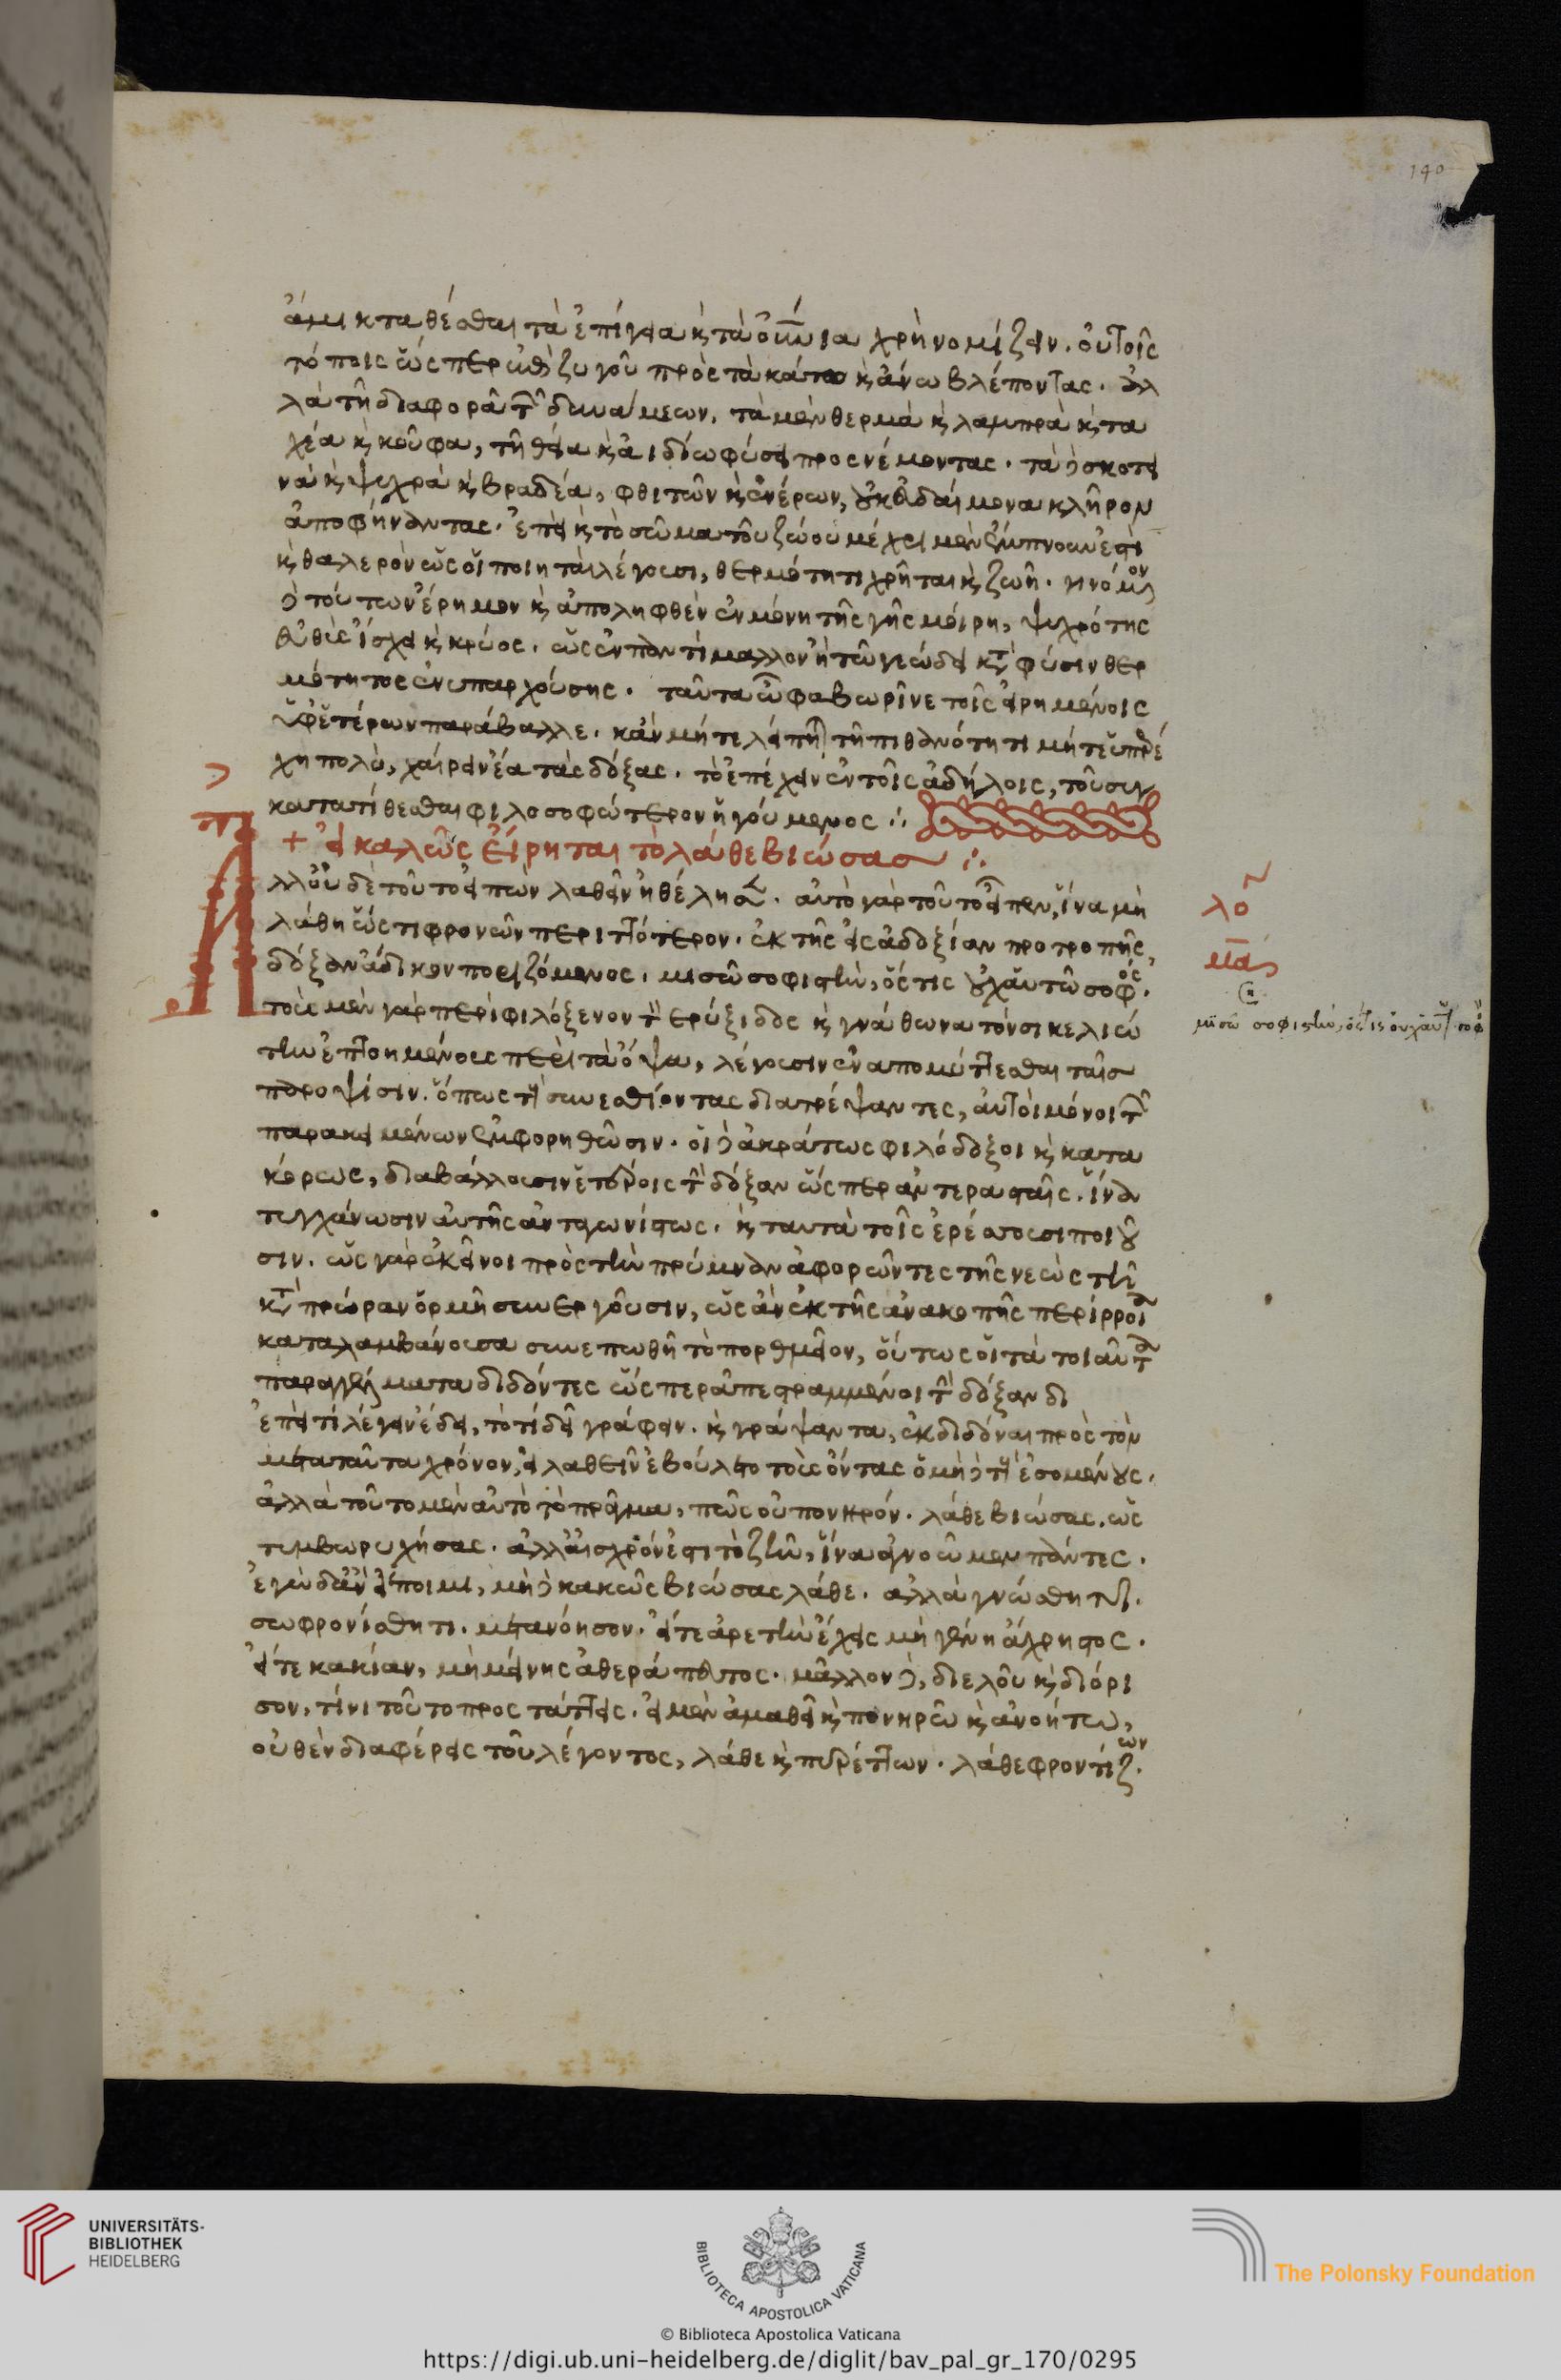 140
ἄμικτα θέσθαι τὰ ἐπίγεια καὶ τὰ οὐράνια χρὴ νομίζειν. οὐ τοῖς
τόποις ὥσπερ ἐπὶ ζυγοῦ πρὸς τὰ κάτω καὶ ἄνω βλέποντας. ἀλ
λὰ τῆ διαφορᾶ τῶν δυνάμεων, τὰ μὲν θερμὰ καὶ λαμπρὰ καὶ τα
χέα καὶ κοῦφα, τῆ θεία καὶ ἀιδίω φύσει προσνέμοντας. τὰ δὲ σκοτει
νὰ καὶ ψυχρὰ καὶ βραδέα, φθιτῶν καὶ ἐνέρων, οὐκ εὐδαίμονα κλῆρον
ἀποφήναντας. ἐπεὶ καὶ τὸ σῶμα τοῦ ζώου μέχρι μὲν ἔμπνουν ἐστὶ
καὶ θαλερὸν ὡς οἱ ποιηταὶ λέγουσι, θερμότητι χρῆται καὶ ζωῆ. γινόμενον
δὲ τούτων ἔρημον καὶ ἀποληφθὲν ἐν μόνη τῆς γῆς μοίρη, ψυχρότης
εὐθὺς ἴσχει καὶ κρύος. ὡς ἐν παντὶ μᾶλλον ἢ τῶ γεώδει κατὰ φύσιν θερ
μότητος ἐνυπαρχούσης. ταῦτα ὦ φαβωρῖνε τοῖς εἰρημένοις
ὑφ' ἑτέρων παράβαλλε. κἂν μήτε λείπηται τῆ πιθανότητι μήτε ὑπερέ
χη πολὺ, χαίρειν ἔα τὰς δόξας. τὸ ἐπέχειν ἐν τοῖς ἀδήλοις, τοῦ συγ
κατατίθεσθαι φιλοσοφώτερον ἡγούμενος ∴
+ εἰ καλῶς εἴρηται τὸ λάθε βιώσας ∴
Αλλ' οὐδὲ τοῦτο εἰπὼν λαθεῖν ἠθέλησεν. αὐτὸ γὰρ τοῦτο εἶπεν, ἵνα μὴ
λάθη ὥς τι φρονῶν περιττότερον. ἐκ τῆς εἰς ἀδοξίαν προτροπῆς,
δόξαν ἄδικον ποριζόμενος. μισῶ σοφιστὴν, ὅστις οὐχ αὑτῶ σοφός.
τοὺς μὲν γὰρ περὶ φιλόξενον τὸν ἐρύξιδος καὶ γνάθωνα τὸν σικελιώ
την ἐπτοημένους περὶ τὰ ὄψα, λέγουσιν ἐναπομύττεσθαι ταῖς
παροψίσιν. ὅπως τοὺς συνεσθίοντας διατρέψαντες, αὐτοὶ μόνοι τῶν
παρακειμένων ἐμφορηθῶσιν. οἱ δὲ ἀκράτως φιλόδοξοι καὶ κατα
κόρως, διαβάλλουσιν ἑτέροις τὴν δόξαν ὥσπερ ἀντερασταῖς. ἵνα
τυγχάνωσιν αὐτῆς ἀνταγωνίστως. καὶ ταυτὰ τοῖς ἐρέσσουσι ποιοῦ
σιν. ὡς γὰρ ἐκεῖνοι πρὸς τὴν πρύμναν ἀφορῶντες τῆς νεὼς τῆ
κατὰ πρώραν ὁρμῆ συνεργοῦσιν, ὡς ἂν ἐκ τῆς ἀνακοπῆς περίρροια
καταλαμβάνουσα συνεπωθῆ τὸ πορθμεῖον, οὕτως οἱ τὰ τοιαῦτα
παραγγέλματα διδόντες ὥσπερ ἀπεστραμμένοι τὴν δόξαν δι
ἐπεὶ τί λέγειν ἔδει, τὸ τί δεῖ γράφειν. καὶ γράψαντα, ἐκδιδόναι πρὸς τὸν
μετὰ ταῦτα χρόνον, εἰ λαθεῖν ἐβούλετο τοὺς ὄντας ὁ μὴ δὲ τοὺς ἐσομένους.
ἀλλὰ τοῦτο μὲν αὐτὸ τὸ πρᾶγμα, πῶς οὐ πονηρόν. λάθε βιώσας. ὡς
τυμβωρυχήσας. ἀλλ' αἰσχρόν ἐστι τὸ ζῆν, ἵνα ἀγνοῶμεν πάντες.
ἐγὼ δ' ἂν εἴποιμι, μὴ δὲ κακῶς βιώσας λάθε. ἀλλὰ γνώσθητι.
σωφρονίσθητι. μετανόησον. εἴτε ἀρετὴν ἔχεις μὴ γένη ἄχρηστος.
εἴτε κακίαν, μὴ μείνης ἀθεράπευτος. μᾶλλον δὲ, διελοῦ καὶ διόρι
σον, τίνι τοῦτο προστάττεις. εἰ μὲν ἀμαθεῖ καὶ πονηρῶ καὶ ἀνοήτω,
οὐθὲν διαφέρεις τοῦ λέγοντος, λάθε καὶ πυρέττων. λάθε φροντίζων.
μισῶ σοφιστὴν, ὅστις οὐχ αὑτῶ σοφός
UNIVERSITÄTS-
BIBLIOTHEK
HEIDELBERG
BIBLIOTECA APOSTOLICA VATICANA
The Polonsky Foundation
© Biblioteca Apostolica Vaticana
https://digi.ub.uni-heidelberg.de/diglit/bav_pal_gr_170/0295